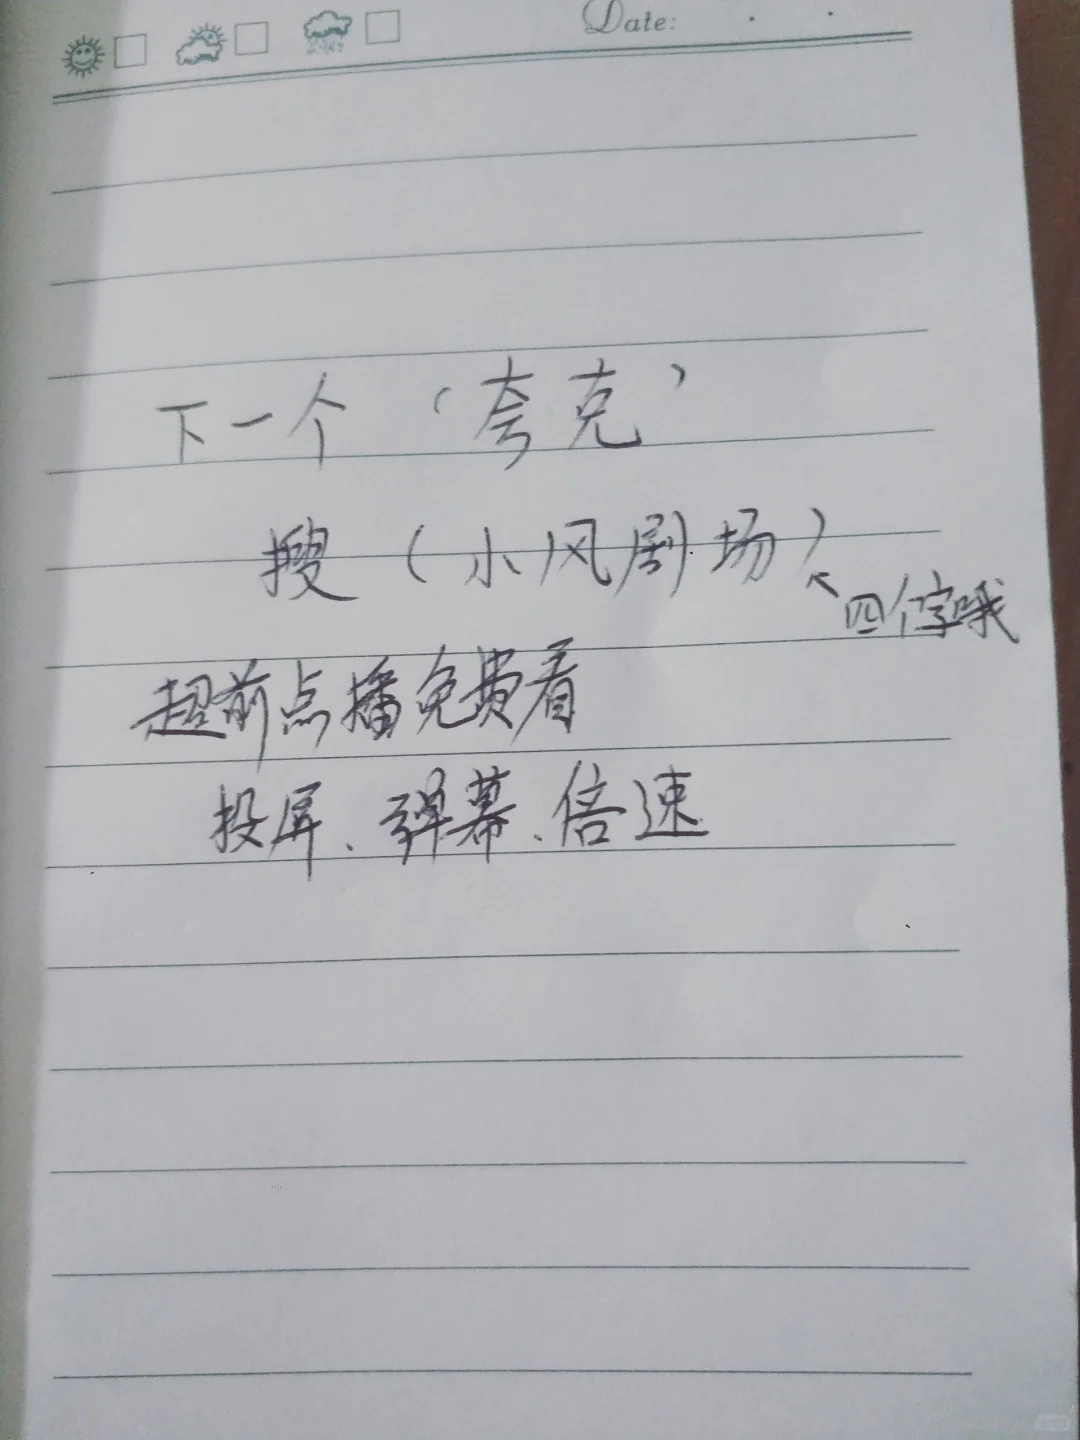 Date:
下一个 ‘夸克’
搜 (小风剧场)
四个字哦
超前点播免费看
投屏、弹幕、倍速